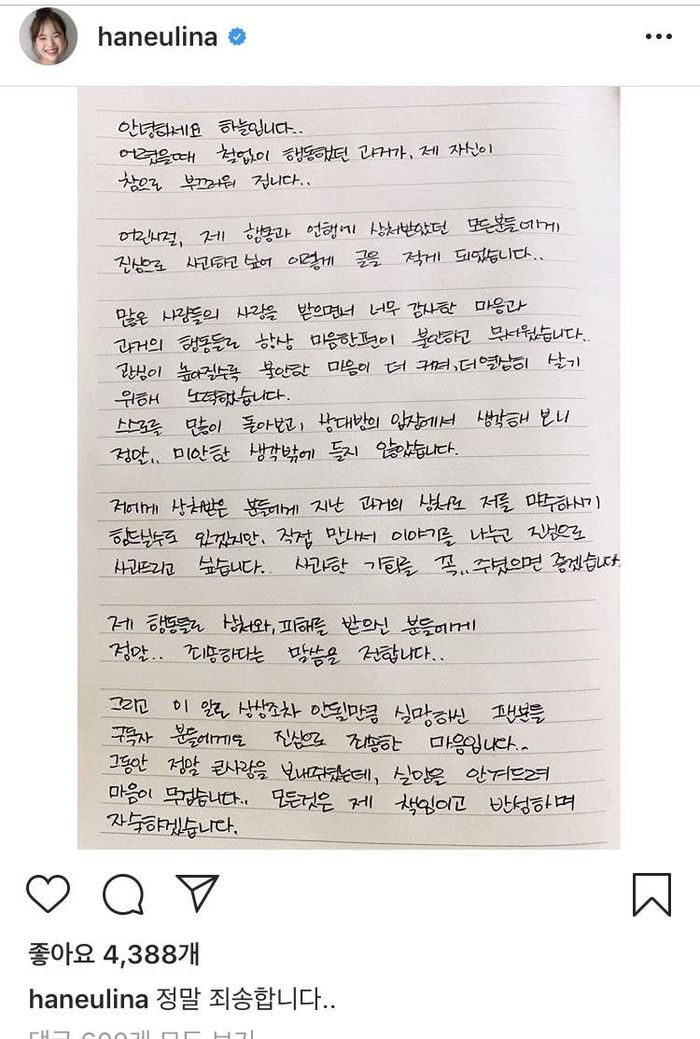 haneulina
안녕하세요 하늘입니다..
어렸을때 철없이 행동했던 과거가, 제 자신이
참으로 부끄러워 집니다..
어린시절, 제 행동과 언행에 상처받았던 모든분들에게
진심으로 사과하고 싶어 이렇게 글을 적게 되었습니다..
많은 사람들의 사랑을 받으면서 너무 감사한 마음과
과거의 행동들로 항상 마음한편이 불안하고 무서웠습니다..
관심이 높아질수록 불안한 마음이 더 커져, 더 열심히 살기
위해 노력했습니다.
스스로를 많이 돌아보고, 상대방의 입장에서 생각해 보니
정말.. 미안한 생각밖에 들지 않았습니다.
저에게 상처받은 분들에게 지난 과거의 상처로 저를 마주하시기
힘드실수도 있겠지만, 직접 만나서 이야기를 나누고 진심으로
사과드리고 싶습니다.. 사과할 기회를 꼭.. 주셨으면 좋겠습니다.
제 행동들로 상처와, 피해를 받으신 분들에게
정말.. 죄송하다는 말씀을 전합니다..
그리고 이 일로 상상조차 안될만큼 실망하신 팬분들
구독자 분들에게도 진심으로 죄송한 마음입니다..
그동안 정말 큰사랑을 보내주셨는데, 실망을 안겨드려
마음이 무겁습니다.. 모든것은 제 책임이고 반성하며
자숙하겠습니다.
좋아요 4,388개
haneulina 정말 죄송합니다..